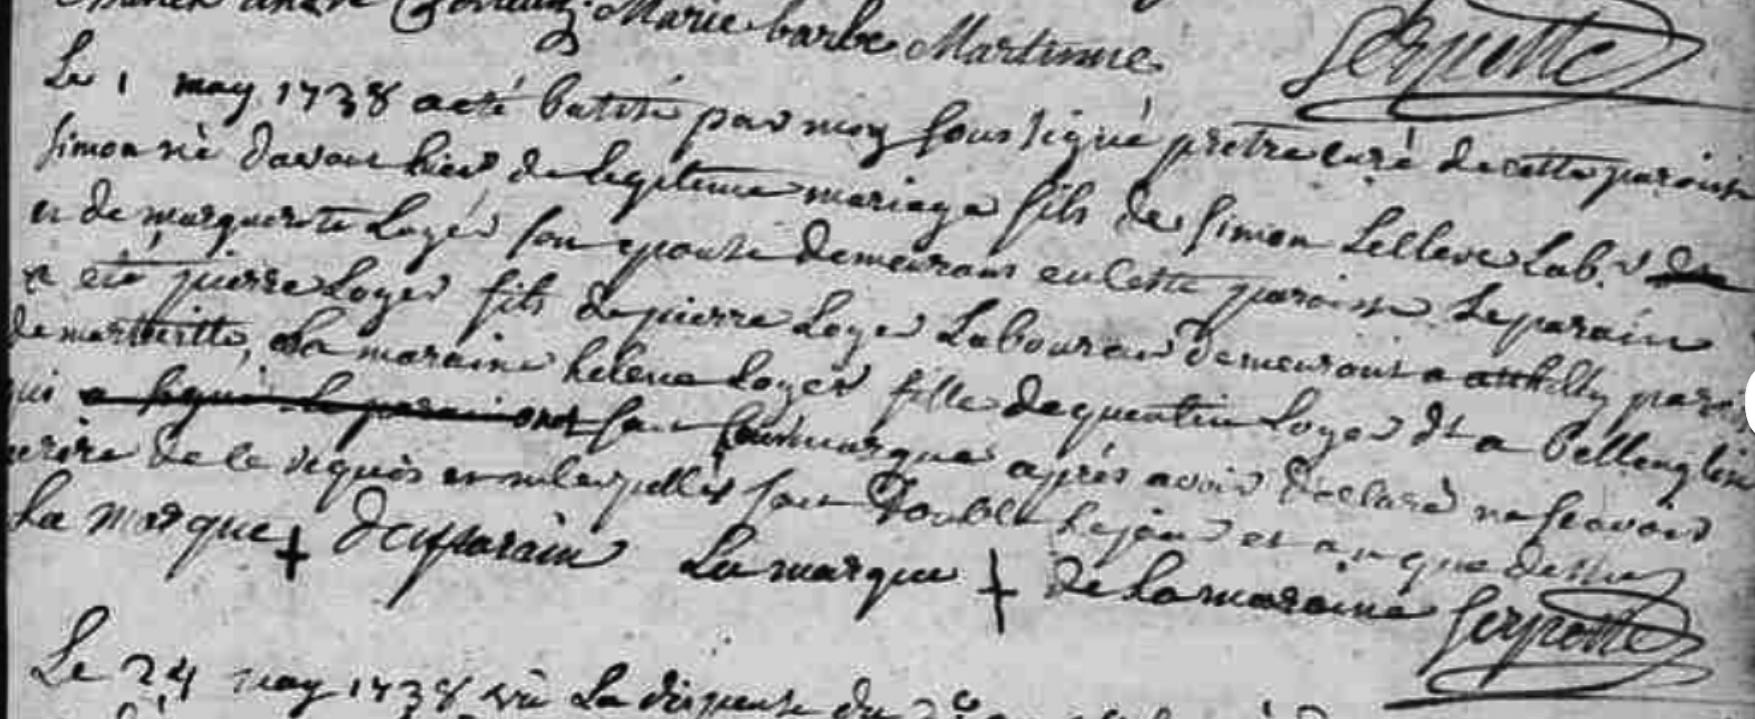 Marie barbe Martinne Serpette
Le 1 may 1738 a eté batisé par moy soussigné prêtre curé de cette paroisse
simon né d'avant hier de legitime mariage fils de simon Lelleve Lab.r
et de marguerite Loger son epouse demeurans en cette paroisse Le parain
a eté pierre Loger fils de pierre Loger Laboureur demeurant a atthilly paroisse
de marteville, La maraine helene Loger fille de quentin Loger dt a bellenglise
qui a signé le parain ont fait leur marque après avoir déclaré ne scavoir
ecrire de ce requis fait double Le jour et an que dessus
La marque + du parain La marque + de La maraine Serpette
Le 24 may 1738 vu La dispense du